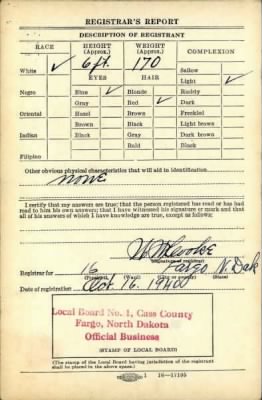 REGISTRAR'S REPORT
DESCRIPTION OF REGISTRANT
RACE HEIGHT (Approx.) WEIGHT (Approx.) COMPLEXION
6 ft. 170
White ✓ Sallow
EYES HAIR Light ✓
Negro Blue ✓ Blonde Ruddy
Gray Red ✓ Dark
Oriental Hazel Brown Freckled
Brown Black Light brown
Indian Black Gray Dark brown
Bald Black
Filipino
Other obvious physical characteristics that will aid in identification
None
I certify that my answers are true; that the person registered has read or has had read to him his own answers; that I have witnessed his signature or mark and that all of his answers of which I have knowledge are true, except as follows:
(Signature of registrar)
Registrar for 16 Fargo N. Dak
(Precinct) (Ward) (City or county) (State)
Date of registration Oct. 16. 1940
Local Board No. 1, Cass County
Fargo, North Dakota
Official Business
(STAMP OF LOCAL BOARD)
(The stamp of the Local Board having jurisdiction of the registrant shall be placed in the above space.)
16-17105